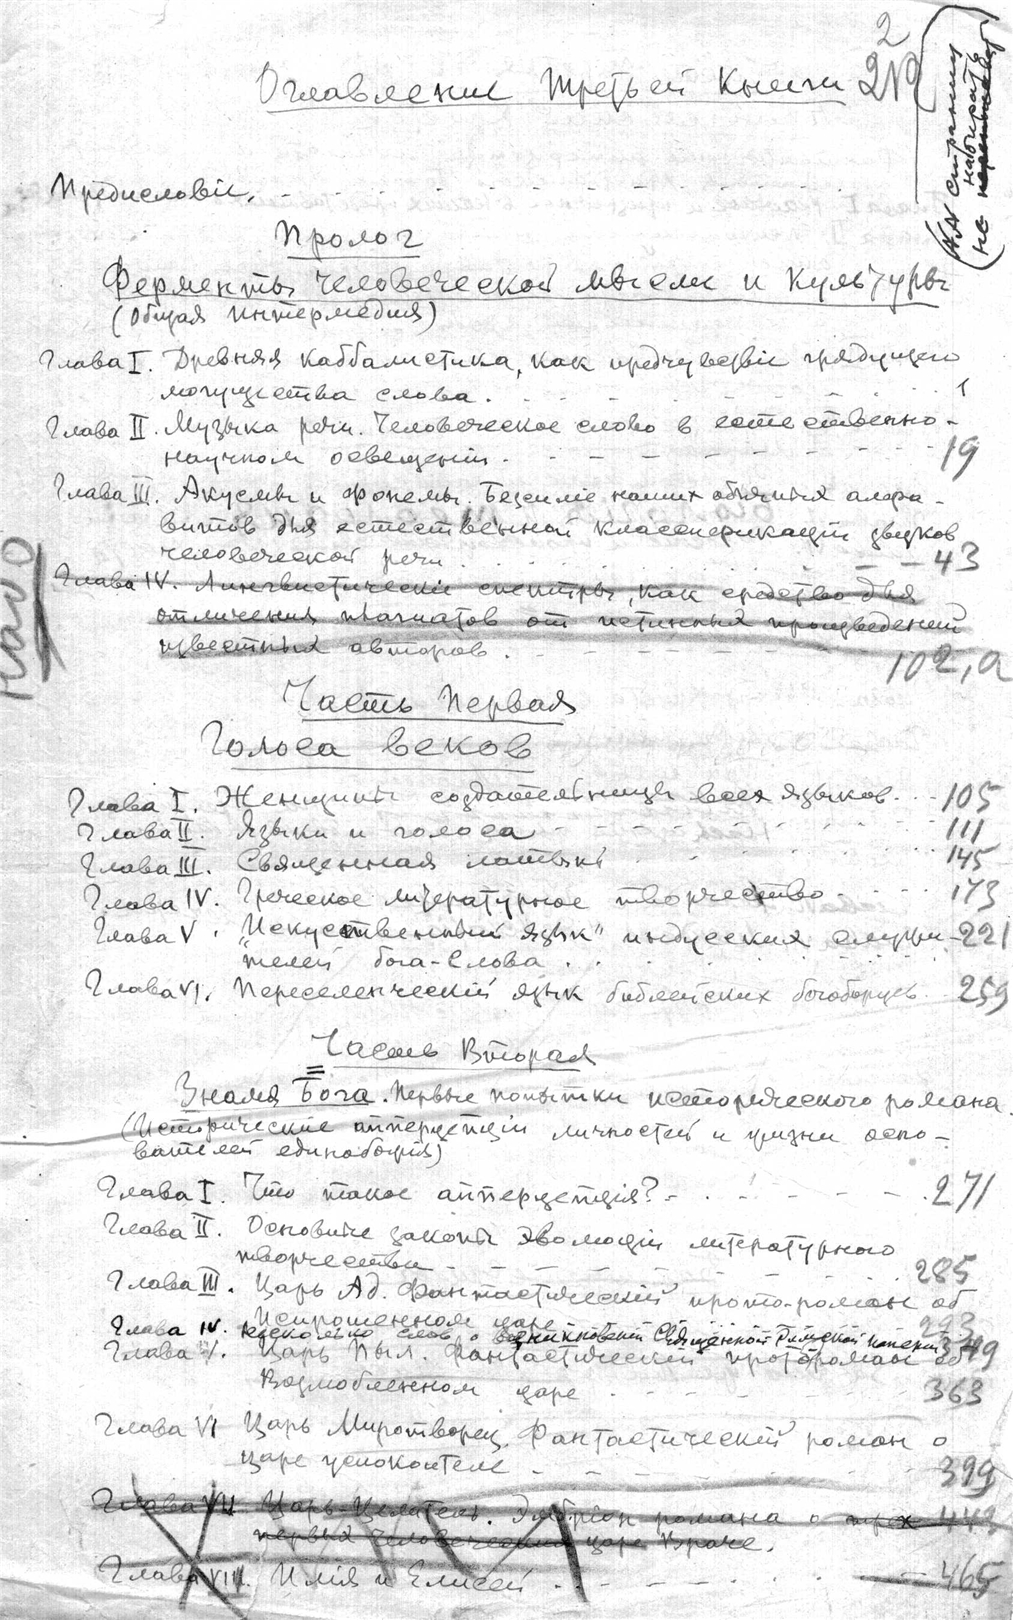 2
Оглавление третьей книги
NN страниц
набирать
не
Предисловіе.
Пролог
Ферменты человеческой мысли и культуры
(Общая интермедия)
Глава I. Древняя каббалистика, как предчувствіе грядущего
могущества слова. 1
Глава II. Музыка речи. Человеческое слово в естественно-
научном освещеніи. 19
Глава III. Акусмы и фонемы. Безсиліе наших обычных алфа-
витов для естественной классификаціи звуков
человеческой речи 43
Надо
Глава IV. Лингвистическіе спектры, как средство для
отличения плагиатов от истинных произведений
известных авторов. 102,а
Часть Первая
Голоса веков
Глава I. Женщины создательницы всех языков. 105
Глава II. Языки и голоса 111
Глава III. Священная латынь 145
Глава IV. Греческое литературное творчество 173
Глава V. "Искуственный язык" индусских служи- 221
телей бога-Слова
Глава VI. Переселенческий язык библейских богоборцев. 259
Часть Вторая
Знамя Бога. Первые попытки исторического романа.
(Исторические апперцепции личностей и жизни осно-
вателей единобожія)
Глава I. Что такое апперцепція? 271
Глава II. Основные законы эволюціи литературного
творчества 285
Глава III. Царь Ад. Фантастический прото-роман об
Испрошенном царе 293
Глава IV. Несколько слов о возникновении Священной Римской имперіи 349
Глава V. Царь Пыл. Фантастический протороман об
Возлюбленном царе 363
Глава VI Царь Миротворец. Фантастический роман о
царе успокоителе 399
Глава VII Царь-Целитель. Эмбріон романа о трех 443
первых человеческих царе Враче.
Глава VIII. Илія и Елисей 465